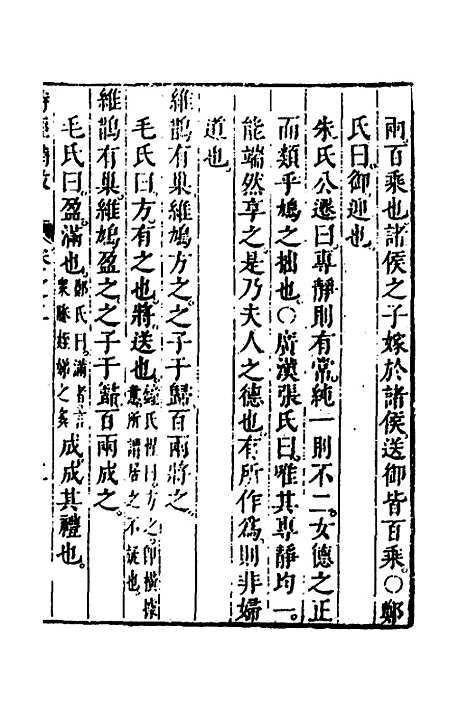 兩百乘也諸侯之子嫁於諸侯送御皆百乘○鄭
氏曰御迎也
朱氏公遷曰專靜則有常純一則不二女德之正
而類乎鳩之拙也○廣漢張氏曰唯其專靜均一
能端然享之是乃夫人之德也有所作為則非婦
道也
維鵲有巢維鳩方之之子于歸百兩將之
毛氏曰方有之也將送也 氏 曰方之 橫據
意所謂居之不疑也
維鵲有巢維鳩盈之之子于歸百兩成之
毛氏曰盈滿也 鄭氏曰滿者言
眾媵姪娣之多 成成其禮也